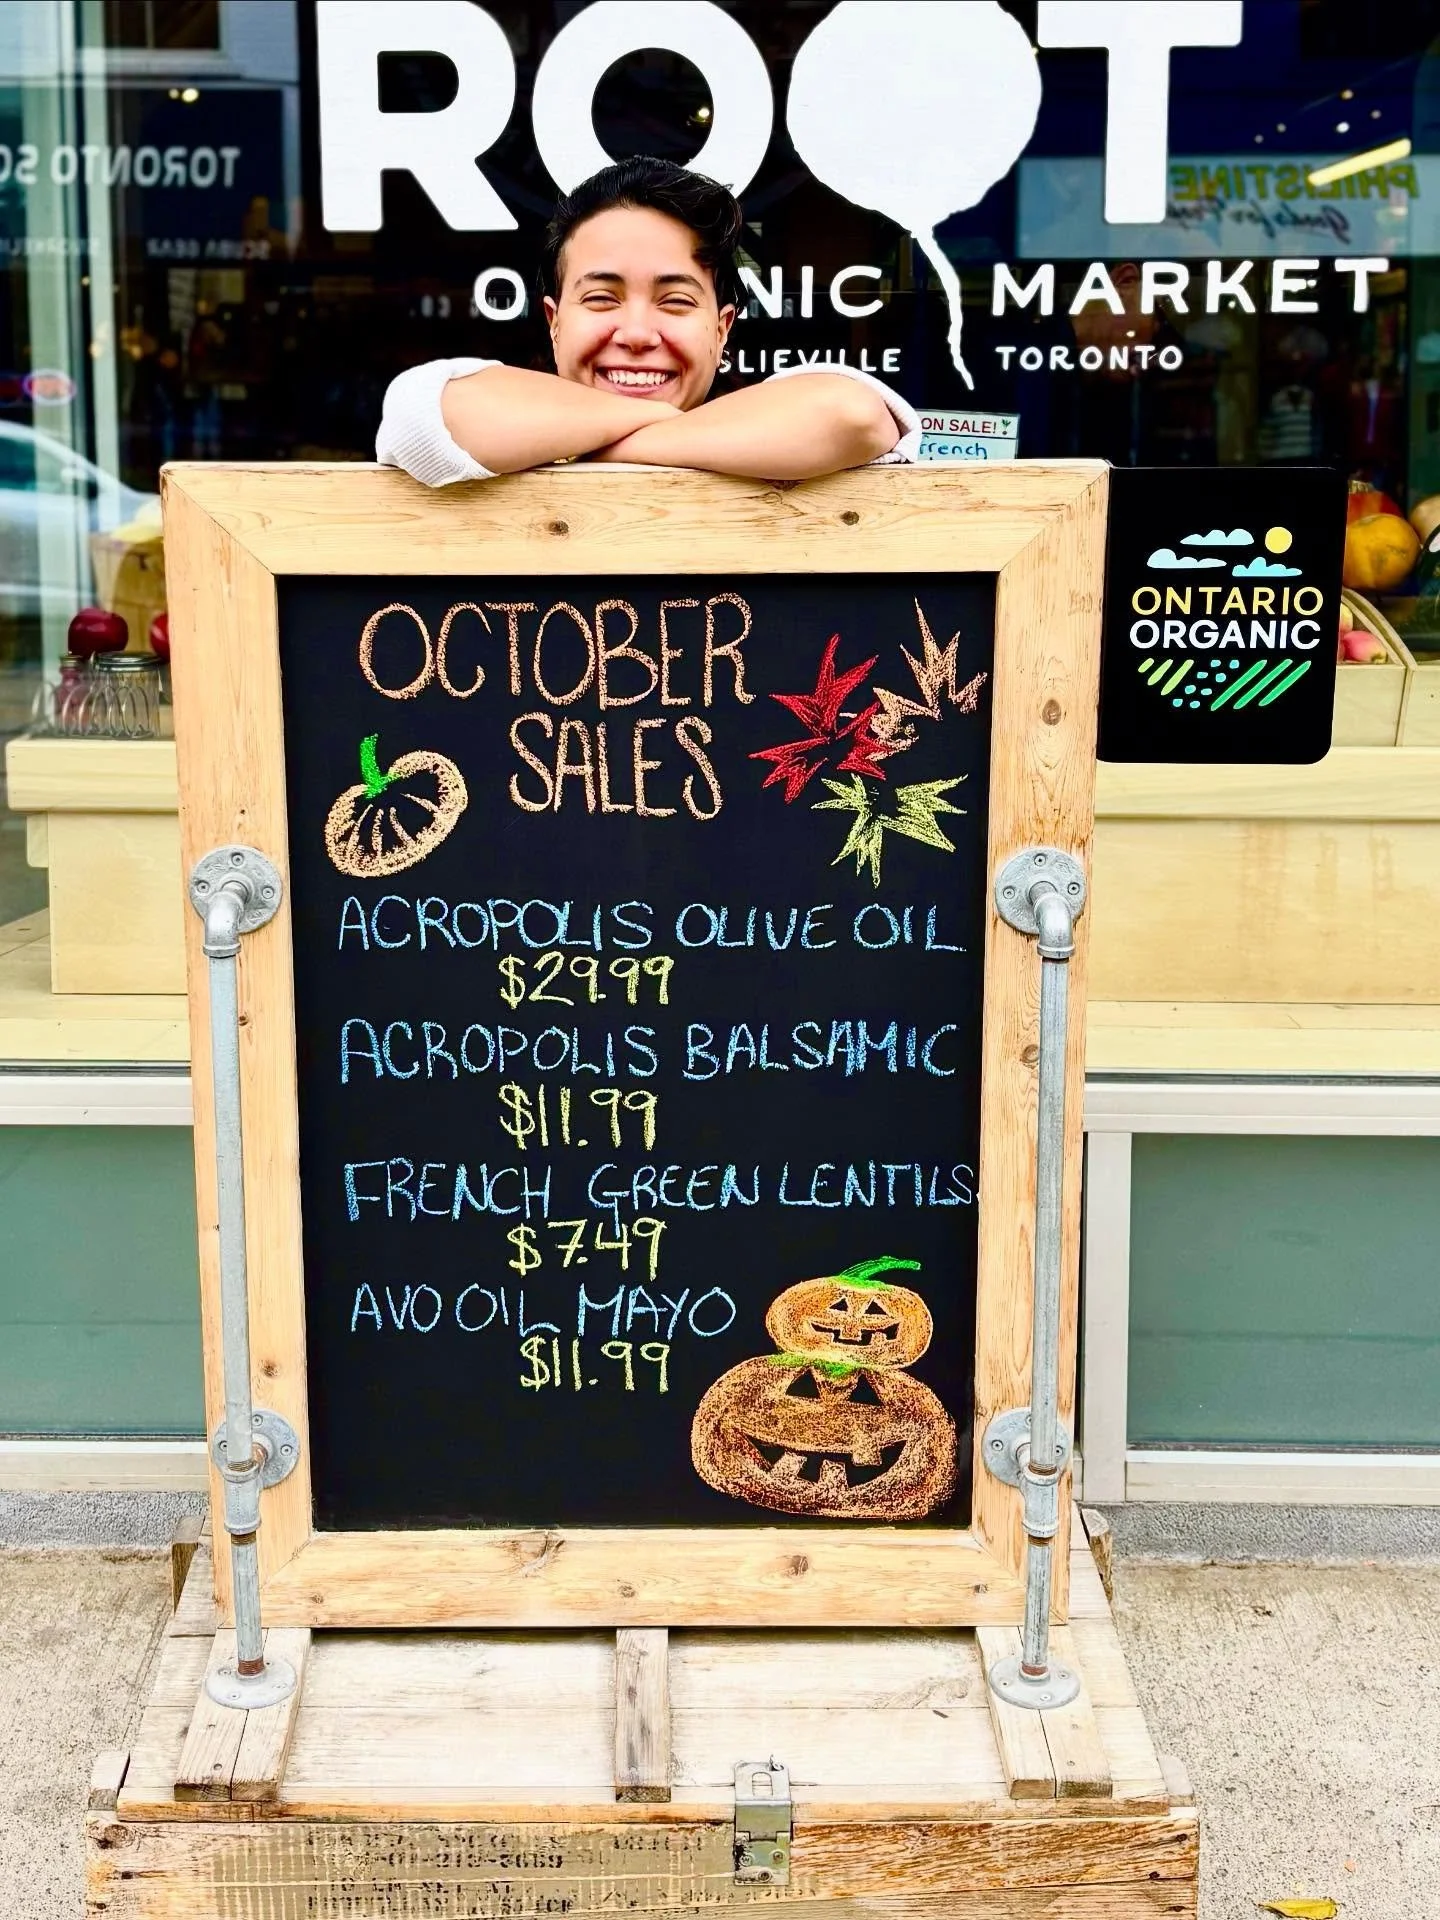 ROOT
TORONTO
PHILISTINE
SCUBA GEAR
O NIC MARKET
SLIEVILLE TORONTO
ON SALE!
French
ONTARIO
ORGANIC
OCTOBER
SALES
ACROPOLIS OLIVE OIL
$29.99
ACROPOLIS BALSAMIC
$11.99
FRENCH GREEN LENTILS
$7.49
AVO OIL MAYO
$11.99